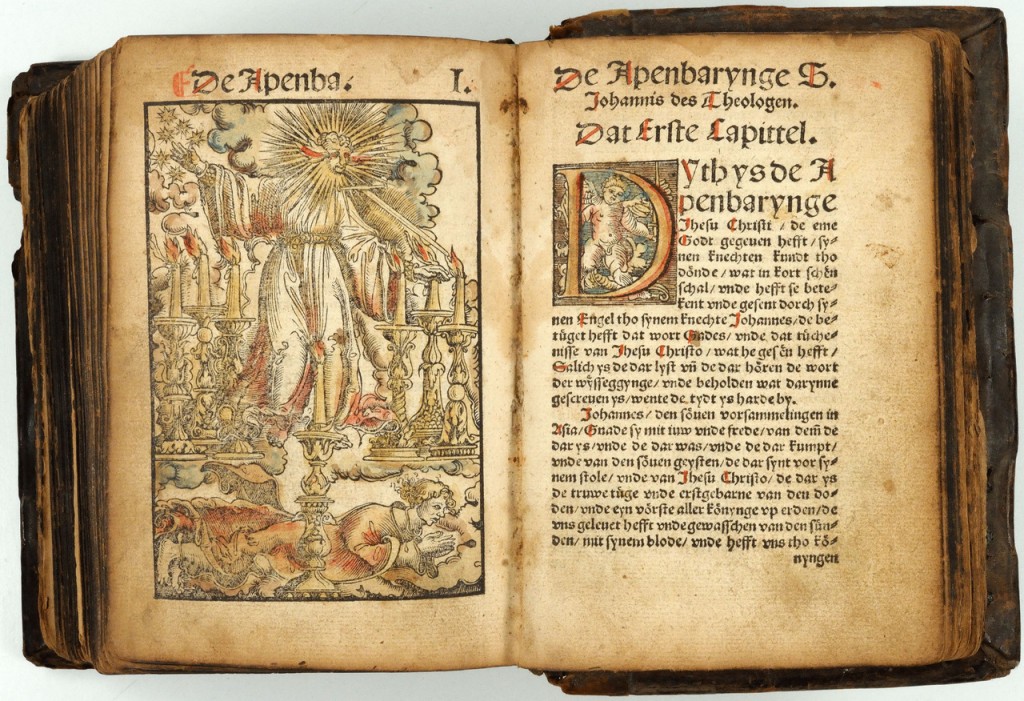 De Apenba. I.
De Apenbarynge S.
Johannis des Theologen.
Dat Erste Capittel.
Dyth ys de A
penbarynge
Jhesu Christi / de eme
Godt gegeuen hefft / sy-
nen knechten kundt tho
dönde / wat in kort schên
schal / vnde hefft se bete-
kent vnde gesent dorch sy-
nen Engel tho synem knechte Johannes / de be-
tüget hefft dat wort Gades / vnde dat tüche-
nisse van Jhesu Christo / wat he gesên hefft /
Salich ys de dar lyst vñ de dar hören de wort
der wysseggynge / vnde beholden wat darynne
gescreuen ys / wente de tydt ys harde by.
Johannes / den söuen vorsammelingen in
Asia / Gnade sy mit iuw vnde frede / van dem̃ de
dar ys / vnde de dar was / vnde de dar kumpt /
vnde van den söuen geysten / de dar synt vor sy-
nem stole / vnde van Jhesu Christo / de dar ys
de truwe tüge vnde erstgebarne van den do-
den / vnde eyn vörste aller könynge vp erden / de
vns geleuet hefft vnde gewasschen van den sün-
den / mit synem blode / vnde hefft vns tho kö-
nyngen